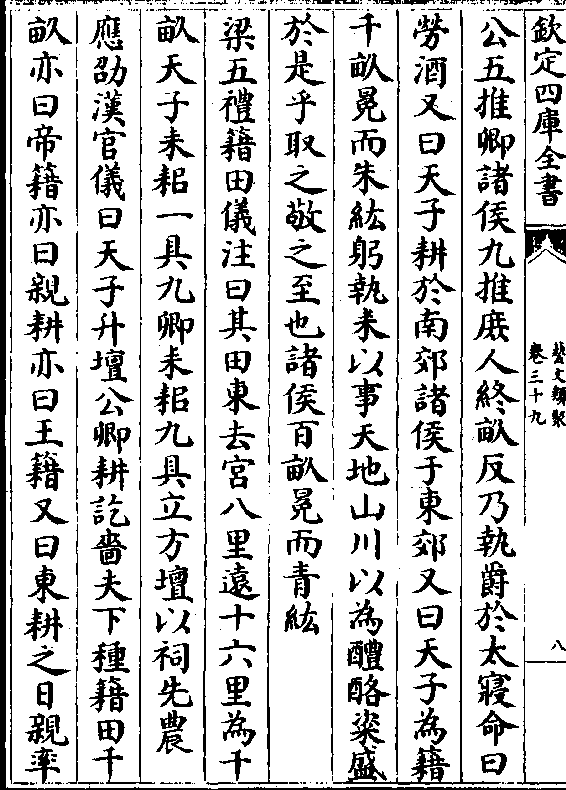 欽定四庫全書
藝文類聚
卷三十九
八
公五推卿諸侯九推庻人終畝反乃執爵於太寢命曰
勞酒又曰天子耕於南郊諸侯于東郊又曰天子為籍
千畝冕而朱紘躬執耒以事天地山川以為醴酪粢盛
於是乎取之敬之至也諸侯百畝冕而青紘
梁五禮籍田儀注曰其田東去宮八里遠十六里為千
畝天子耒耜一具九卿耒耜九具立方壇以祠先農
應劭漢官儀曰天子升壇公卿耕訖嗇夫下種籍田千
畝亦曰帝籍亦曰親耕亦曰王籍又曰東耕之日親率